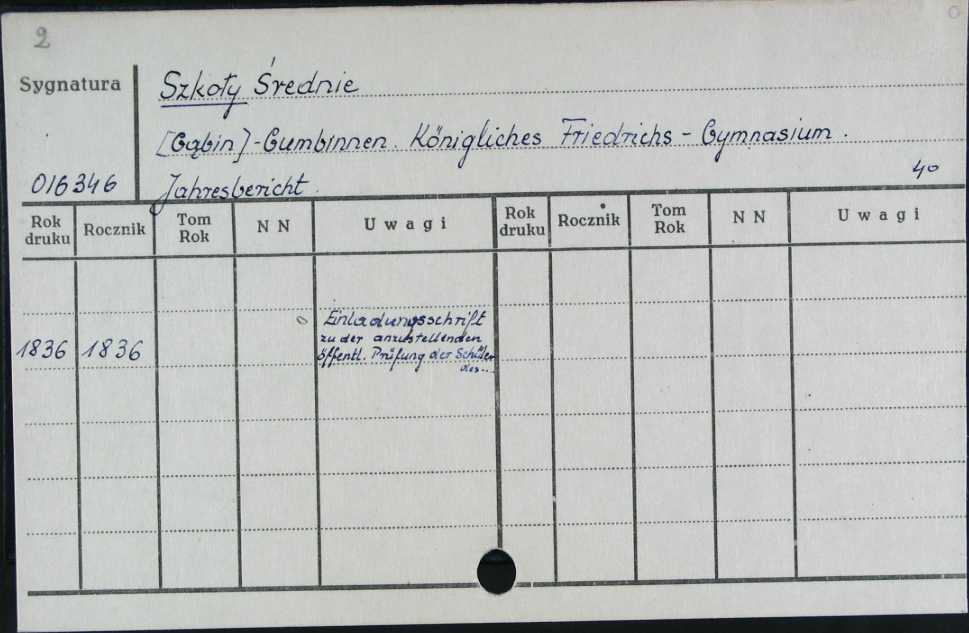 2
Sygnatura
Szkoły Średnie
[Gąbin]-Gumbinnen. Königliches Friedrichs-Gymnasium.
40
016346 Jahresbericht.
Rok druku Rocznik Tom Rok N N Uwagi Rok druku Rocznik Tom Rok N N Uwagi
Einladungsschrift
zu der anzustellenden
1836 1836 öffentl. Prüfung der Schüler
des...